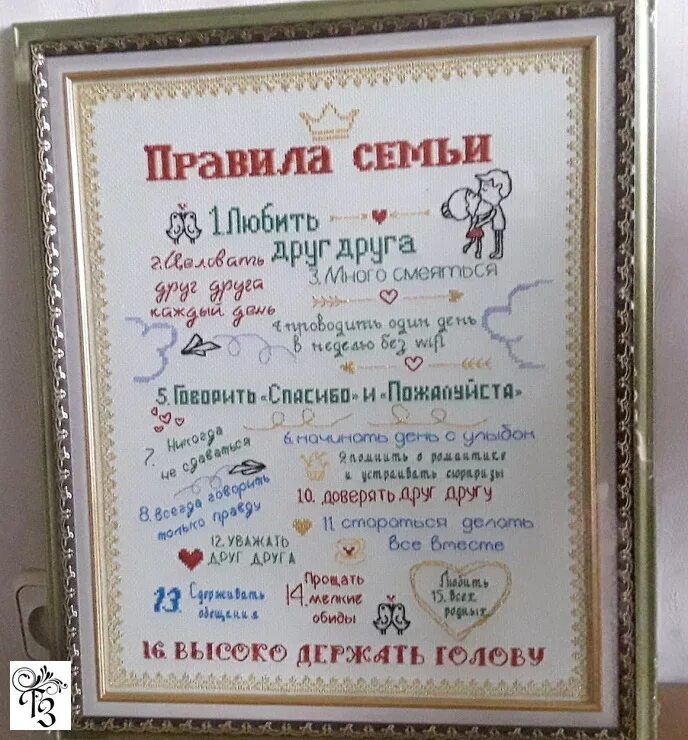 Правила семьи
1. Любить
друг друга
2. Целовать
друг друга
каждый день
3. Много смеяться
4. проводить один день
в неделю без wifi
5. Говорить «Спасибо» и «Пожалуйста»
6. начинать день с улыбок
7. Никогда
не сдаваться
8. всегда говорить
только правду
9 помнить о романтике
и устраивать сюрпризы
10. доверять друг другу
11 стараться делать
все вместе
12. уважать
друг друга
13. Сдерживать
обещания
14. Прощать
мелкие
обиды
Любить
15. всех
родных
16. Высоко держать голову
ТЗ